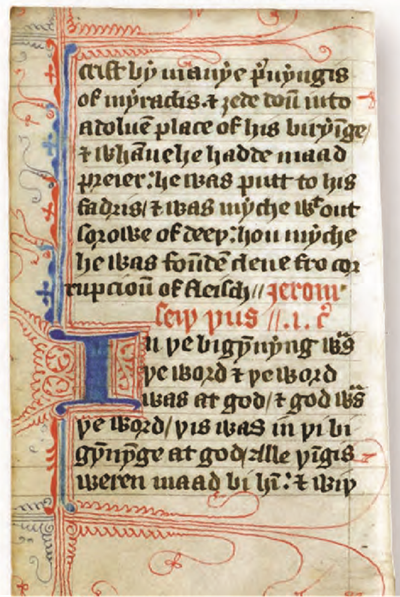 crist by manye p̄uyngis
of myraclis. ⁊ ȝede doū into
a doluē place of his biryīge/
⁊ whāne he hadde maad
preier: he was putt to his
fadris/ ⁊ was myche wᵗout
sorowe of deeþ: hou myche
he was foūdē clene fro cor
rupcioū of fleisch// Jerom
seiþ þus //.i. c̄
In þe bigȳnyng wᵃs
þe word ⁊ þe word
was at god/ ⁊ god wᵃs
þe word/ þis was in þi bi
gȳnȳge at god/ alle þīgis
weren maad bi hī: ⁊ wiþ